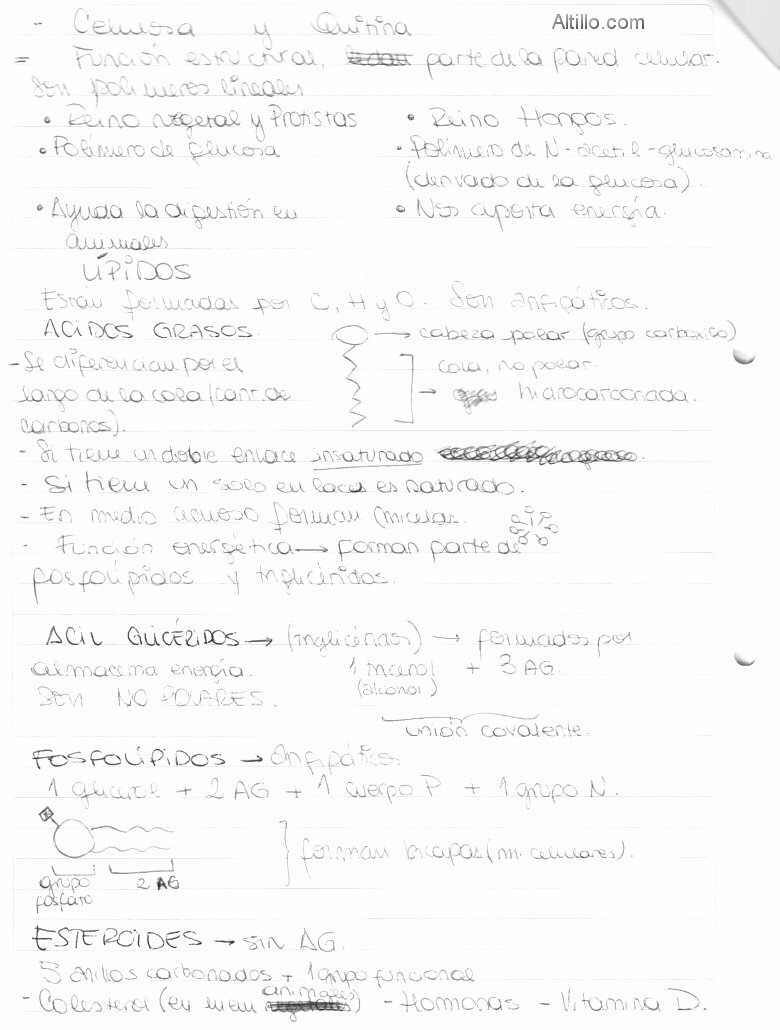 Altillo.com
- Celulosa y Quitina
= Función estructural, parte de la pared celular.
Son polimeros lineales
• Reino vegetal y Protistas • Reino Hongos.
• Polímero de glucosa • Polímero de N-acetil-glucosamina
(derivado de la glucosa).
• Ayuda la digestión en • Nos aporta energía.
animales
LÍPIDOS
Estan formadas por C, H y O. Son anfipáticos.
ACIDOS GRASOS. → cabeza polar (grupo carboxilo)
- Se diferencian por el cola, no polar.
largo de la cola (cant. de → hidrocarbonada.
carbonos).
- Si tiene un doble enlace insaturado
- Si tiene un solo enlace es saturado.
- En medio acuoso forman micelas.
- Función energética → forman parte de
fosfolípidos y triglicéridos.
ACIL GLICÉRIDOS → (triglicéridos) → formados por
almacena energía. 1 + 3 AG.
SON NO POLARES. (alcohol)
unión covalente.
FOSFOLÍPIDOS → Anfipático.
1 glicerol + 2 AG + 1 P + 1 grupo N.
forman bicapas (m. celulares).
grupo 2 AG
fosfato
ESTEROIDES → sin AG.
anillos carbonados + 1 grupo funcional
animales
- Colesterol (en mem ) - Hormonas - Vitamina D.